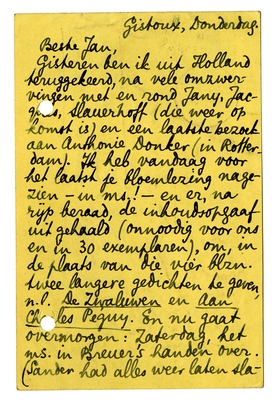 Gistoux, Donderdag.
Beste Jan,
Gisteren ben ik uit Holland
teruggekeerd, na vele omzwer-
vingen met en rond Jany, Jac-
ques, Slauerhoff (die weer op
komst is) en een laatste bezoek
aan Anthonie Donker (in Rotter-
dam). Ik heb vandaag voor
het laatst je bloemlezing nage-
zien - in ms.! - en er, na
rijp beraad, de inhoudsopgaaf
uitgehaald (onnoodig voor ons
en in 30 exemplaren), om, in
de plaats van die vier blzn.
twee langere gedichten te geven,
n.l. De Zwaluwen en Aan
Charles Péguy. En nu gaat
overmorgen: Zaterdag, het
ms. in Breuer's handen over.
(Sander had alles weer laten sla-